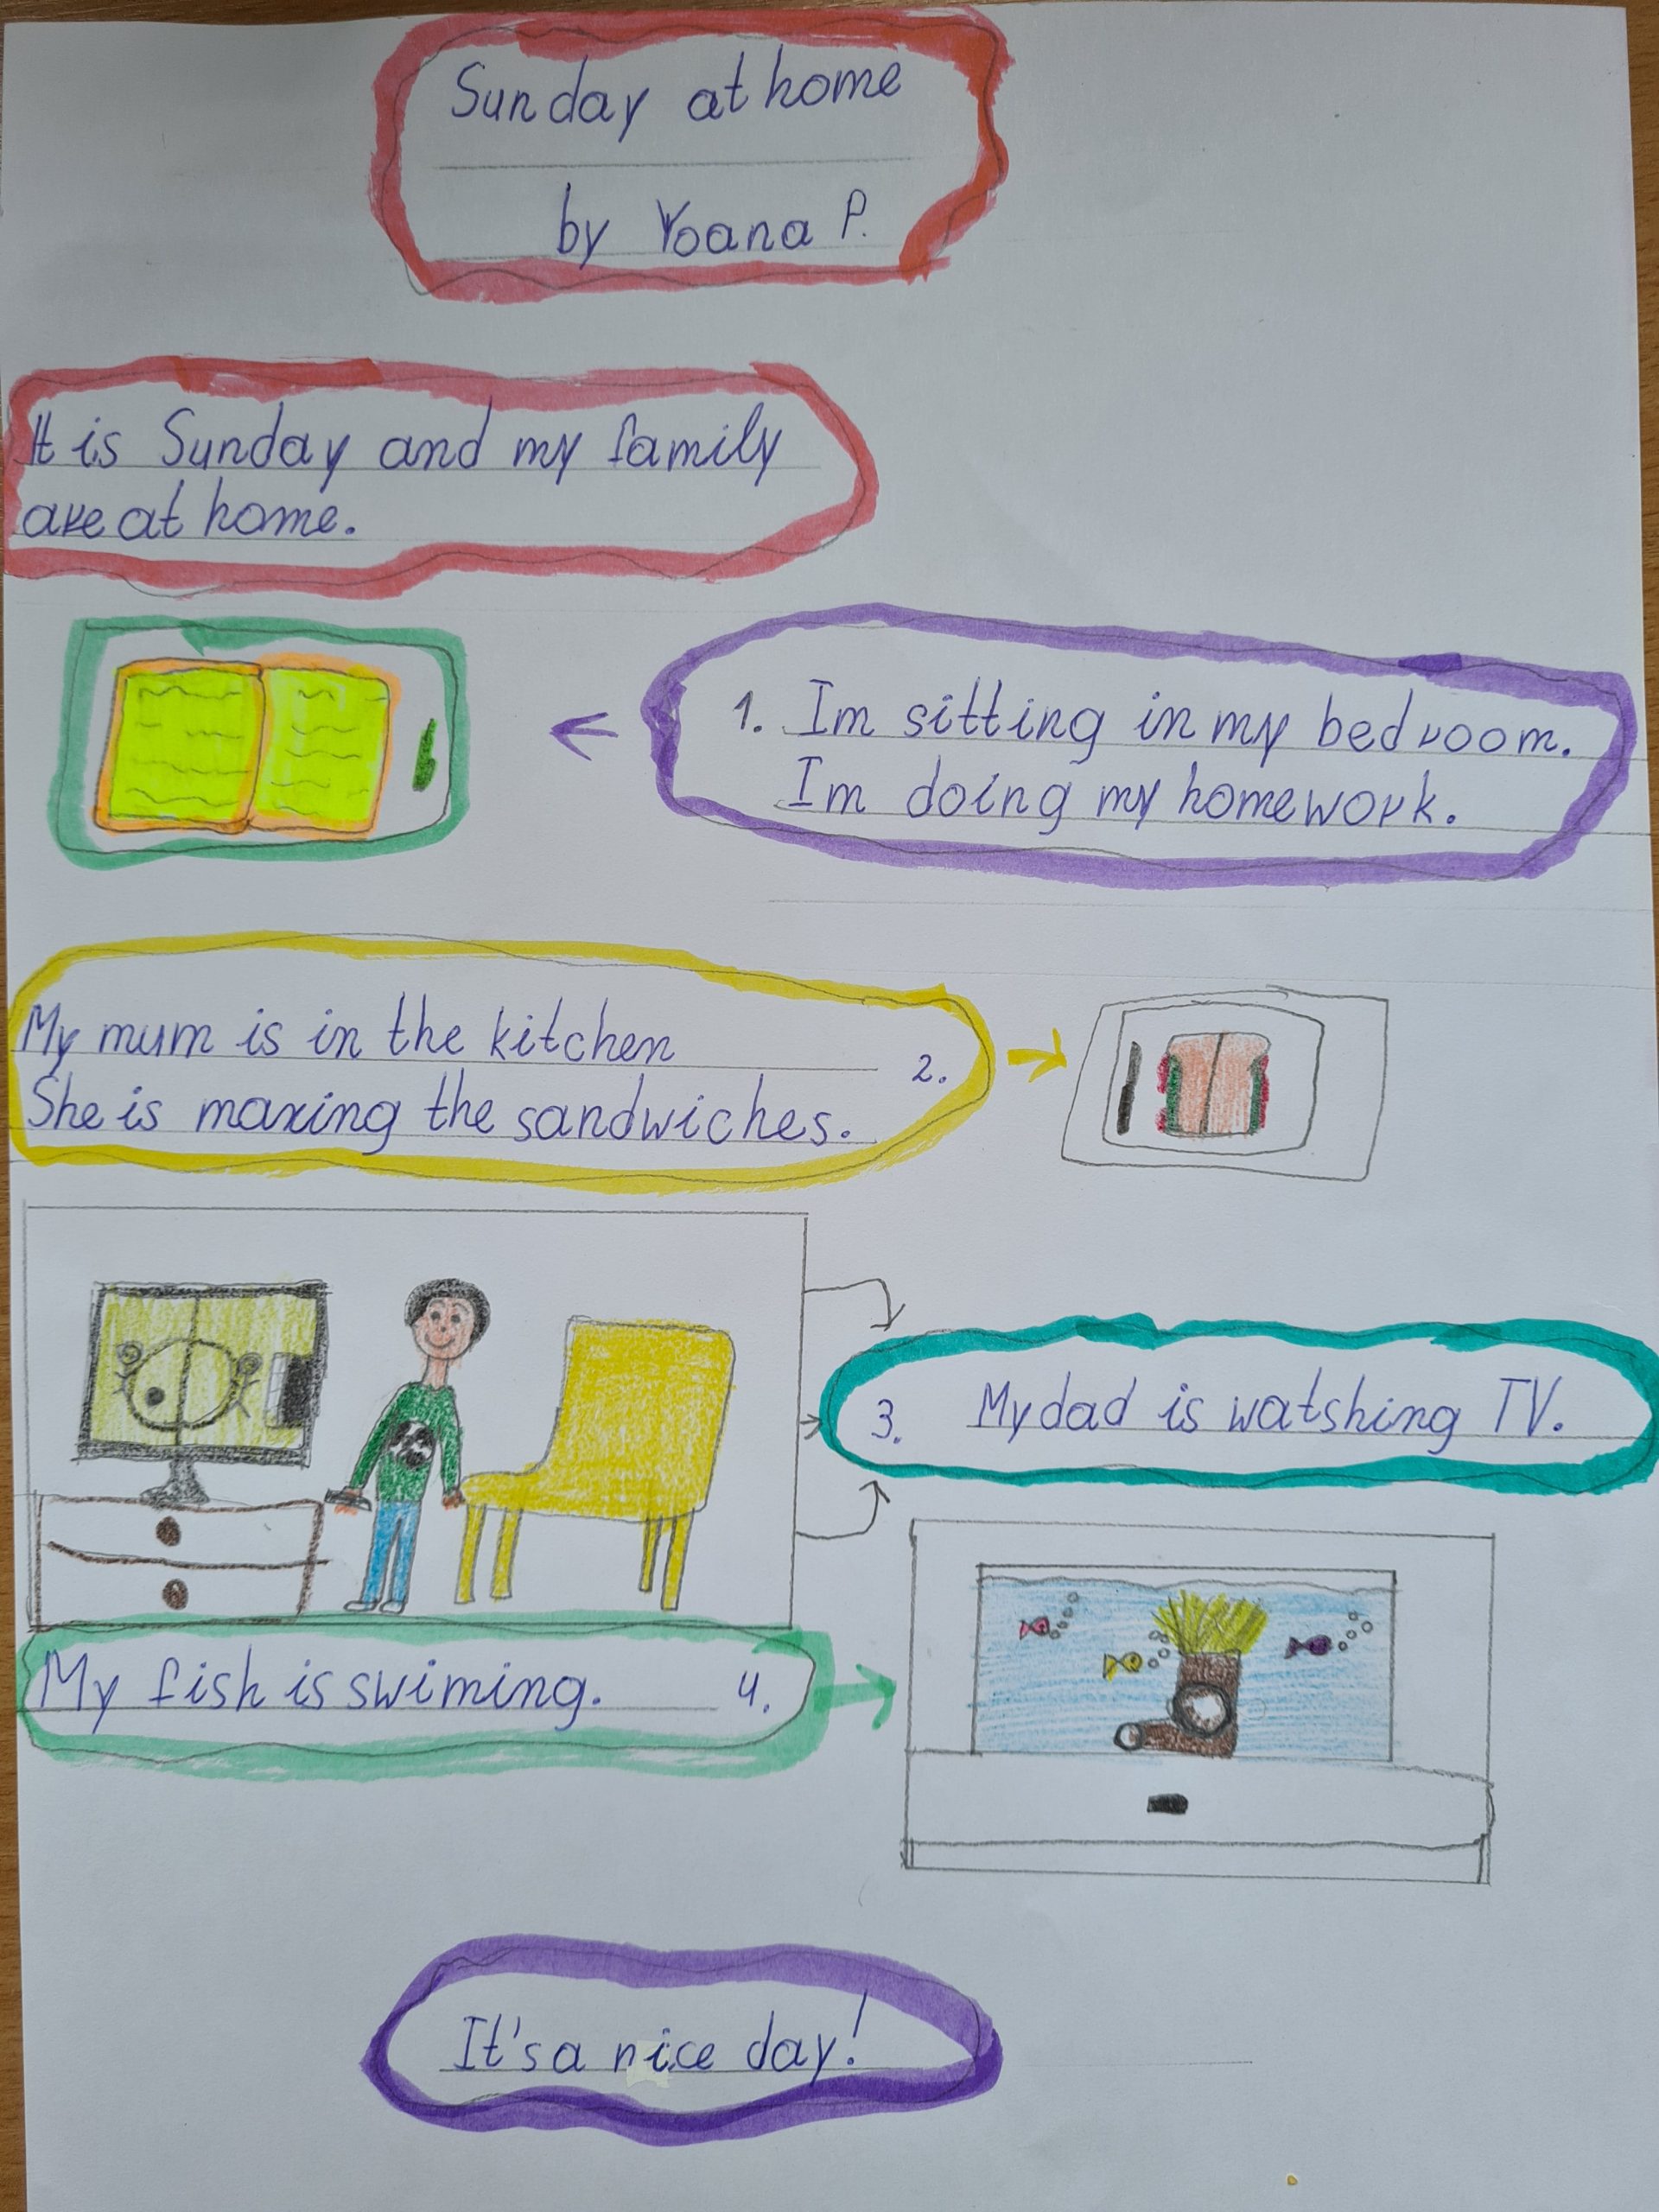 Sunday at home
by Yoana P.
It is Sunday and my family
are at home.
1. Im sitting in my bedroom.
Im doing my homework.
My mum is in the kitchen
She is maxing the sandwiches. 2.
3. My dad is watshing TV.
My fish is swiming. 4.
It's a nice day!